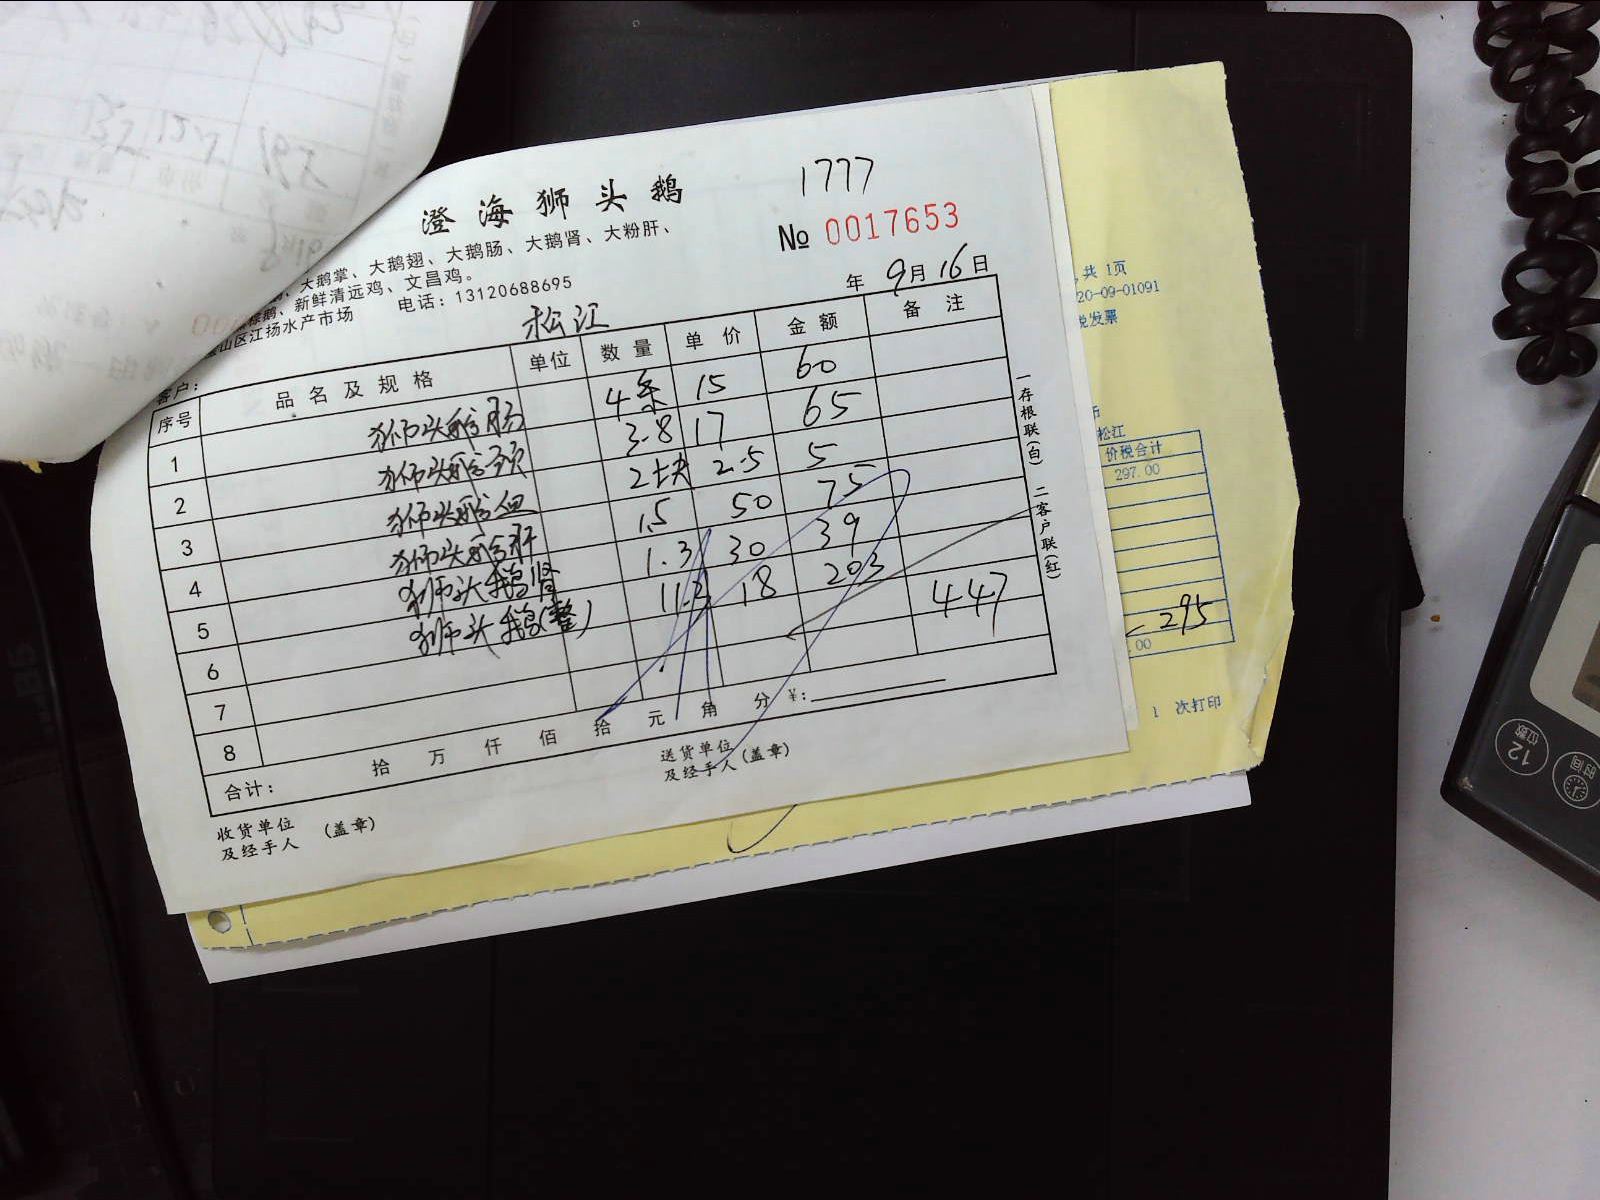 澄海狮头鹅
1777
№ 0017653
、大鹅掌、大鹅翅、大鹅肠、大鹅肾、大粉肝、
鹅、新鲜清远鸡、文昌鸡。
山区江扬水产市场 电话：13120688695
年 9月16日
客户： 松江
序号 品名及规格 单位 数量 单价 金额 备注
1 狮头鹅肠 4条 15 60
2 狮头鹅头 3.8 17 65
3 狮头鹅血 2块 2.5 5
4 狮头鹅肝 1.5 50 75
5 狮头鹅肾 1.3 30 39
6 狮头鹅(整) 11.3 18 203
7 447
8
合计： 拾 万 仟 佰 拾 元 角 分 ¥：
收货单位及经手人 (盖章)
送货单位及经手人 (盖章)
一存根联(白) 二客户联(红)
共 1页
20-09-01091
税发票
松江
价税合计
297.00
295
.00
1 次打印
12
位数
时间